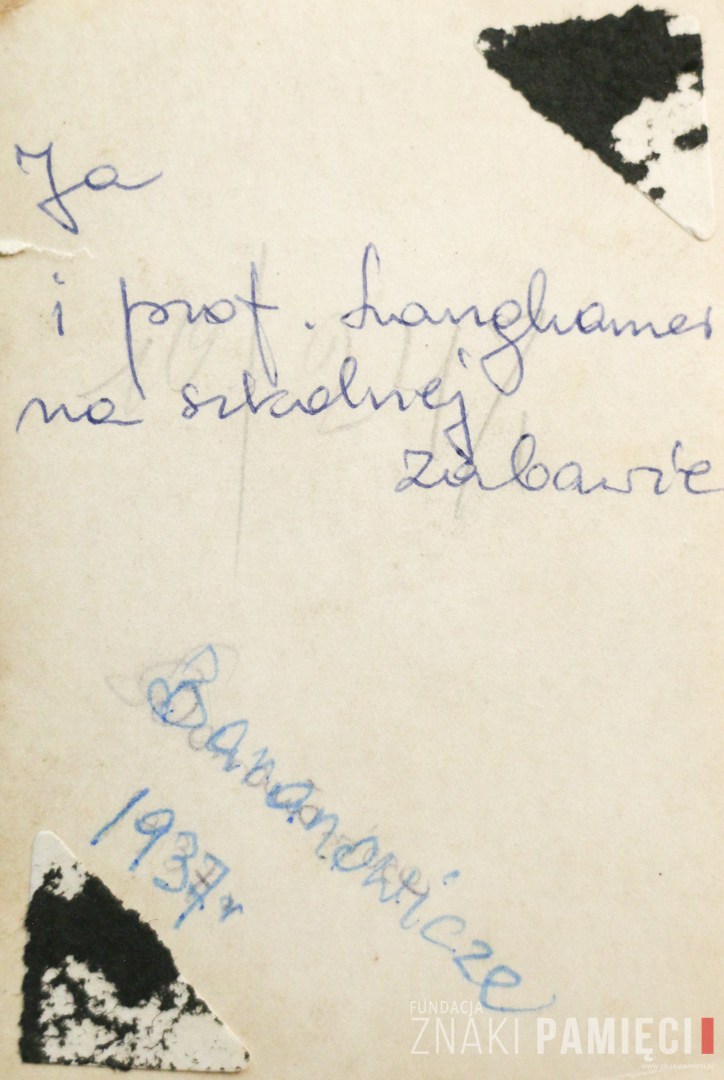 Ja
i prof. Langhamer
na szkolnej
zabawie
Baranowicze
1937r
FUNDACJA
ZNAKI PAMIĘCI